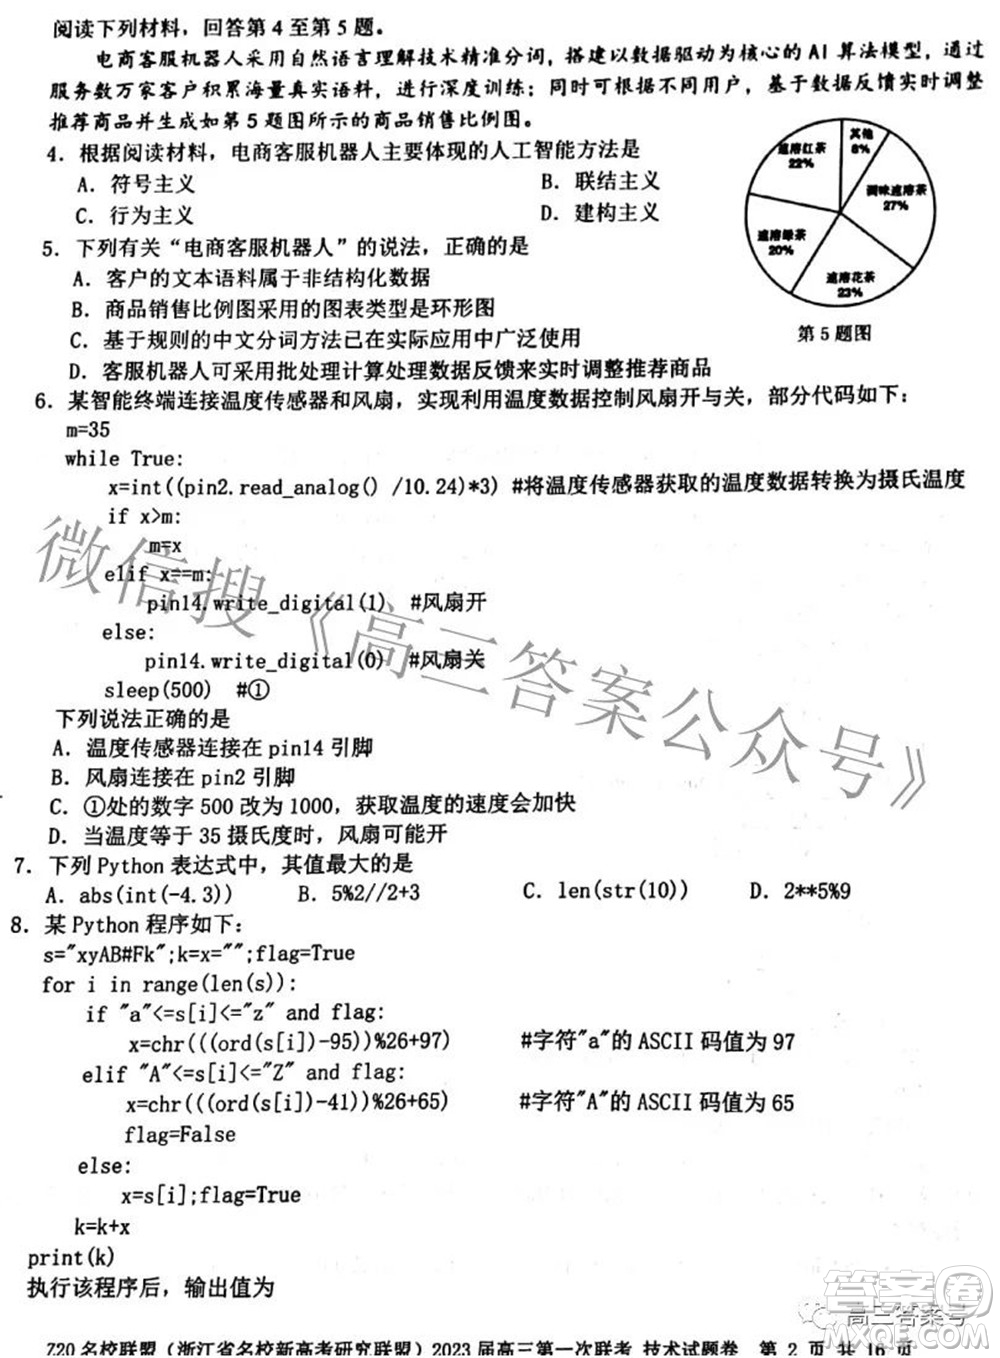 阅读下列材料，回答第 4 至第 5 题。
电商客服机器人采用自然语言理解技术精准分词，搭建以数据驱动为核心的 AI 算法模型，通过
服务数万家客户积累海量真实语料，进行深度训练；同时可根据不同用户，基于数据反馈实时调整
推荐商品并生成如第 5 题图所示的商品销售比例图。
4．根据阅读材料，电商客服机器人主要体现的人工智能方法是
A．符号主义
B．联结主义
C．行为主义
D．建构主义
其他
8%
速溶红茶
22%
调味速溶茶
27%
速溶绿茶
20%
速溶花茶
23%
第 5 题图
5．下列有关“电商客服机器人”的说法，正确的是
A．客户的文本语料属于非结构化数据
B．商品销售比例图采用的图表类型是环形图
C．基于规则的中文分词方法已在实际应用中广泛使用
D．客服机器人可采用批处理计算处理数据反馈来实时调整推荐商品
6．某智能终端连接温度传感器和风扇，实现利用温度数据控制风扇开与关，部分代码如下：
m=35
while True:
x=int((pin2.read_analog() /10.24)*3) #将温度传感器获取的温度数据转换为摄氏温度
if x>m:
m=x
elif x==m:
pin14.write_digital(1) #风扇开
else:
pin14.write_digital(0) #风扇关
sleep(500) #①
下列说法正确的是
A．温度传感器连接在 pin14 引脚
B．风扇连接在 pin2 引脚
C．①处的数字 500 改为 1000，获取温度的速度会加快
D．当温度等于 35 摄氏度时，风扇可能开
7．下列 Python 表达式中，其值最大的是
A．abs(int(-4.3)) B．5%2//2+3 C．len(str(10)) D．2**5%9
8．某 Python 程序如下：
s="xyAB#Fk";k=x="";flag=True
for i in range(len(s)):
if "a"<=s[i]<="z" and flag:
x=chr(((ord(s[i])-95))%26+97) #字符"a"的 ASCII 码值为 97
elif "A"<=s[i]<="Z" and flag:
x=chr(((ord(s[i])-41))%26+65) #字符"A"的 ASCII 码值为 65
flag=False
else:
x=s[i];flag=True
k=k+x
print(k)
执行该程序后，输出值为
Z20 名校联盟（浙江省名校新高考研究联盟）2023 届高三第一次联考 技术试题卷 第 2 页 共 16 页
微信搜《高三答案公众号》
高三答案号
答案圈